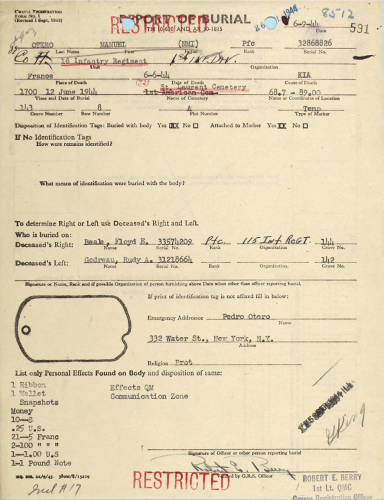 GRAVES REGISTRATION
FORM No. 1
RESTRICTED
REPORT OF BURIAL
TM 10-630 AND AR 30-1815
1944
8512
6-9-44
591
OTERO MANUEL (NMI) Pfc 32868826
Last Name First Name Initial Rank Serial No.
Co H 16 Infantry Regiment 1st INF. DIV.
Organization
France 6-6-44 KIA
Place of Death Date of Death Cause of Death
St. Laurent Cemetery
1700 12 June 1944 1st American Cem. 68.7 - 89.00
Time and Date of Burial Name of Cemetery Name or Coordinates of Location
143 8 A Temp
Grave Number Row Number Plot Number Type of Marker
Disposition of Identification Tags: Buried with body Yes XX No Attached to Marker Yes XX No
If No Identification Tags
How were remains identified?
What means of identification were buried with the body?
To determine Right or Left use Deceased's Right and Left.
Who is buried on:
Deceased's Right: Beals, Floyd E. 33574209 Pfc. 115 Inf. Regt. 144
Name Serial No. Rank Organization Grave No.
Deceased's Left: Godreau, Rudy A. 31218664 142
Name Serial No. Rank Organization Grave No.
Signature or Name, Rank and if possible Organization of person furnishing above Data when other than officer reporting burial.
If print of identification tag is not affixed fill in below:
Emergency Addressee Pedro Otero
Name
332 Water St., New York, N.Y.
Address
Religion Prot
List only Personal Effects Found on Body and disposition of same:
1 Ribbon Effects QM
1 Wallet Communication Zone
Snapshots
Money
10—S
.25 U.S.
21—5 Franc
2-100 " "
1—1.00 U.S
1-1 Pound Note
Signature of Officer or other person reporting burial
Robert E. Berry
Verified by G.R.S. Officer
RESTRICTED
ROBERT E. BERRY
1st Lt. QMC
Graves Registration Officer